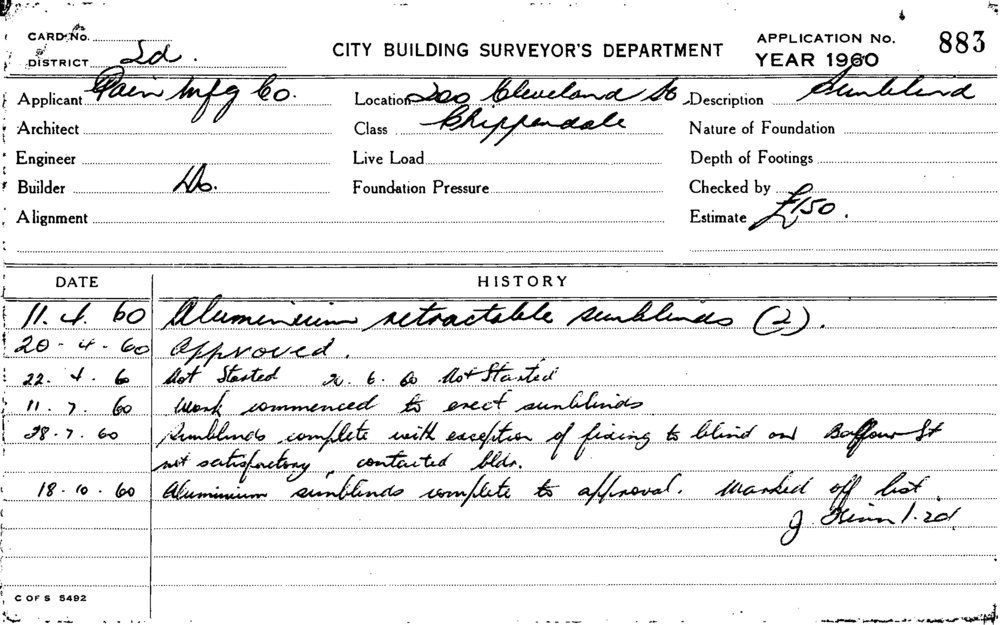 CARD No.
DISTRICT 2d.
CITY BUILDING SURVEYOR'S DEPARTMENT
APPLICATION No. 883
YEAR 1960
Applicant Pain Mfg Co. Location 200 Cleveland St Description Sunblind
Architect Class Chippendale Nature of Foundation
Engineer Live Load Depth of Footings
Builder Do. Foundation Pressure Checked by
Alignment Estimate £150.
DATE HISTORY
11. 4. 60 Aluminium retractable sunblinds (2).
20 - 4 - 60 Approved.
22. 4. 60 Not Started 20. 6. 60 Not Started
11. 7. 60 Work commenced to erect sunblinds
28. 7. 60 Sunblinds complete with exception of fixing to blind on Balfour St
not satisfactory, contacted bldr.
18. 10. 60 Aluminium sunblinds complete to approval. Marked off list.
J. 2d.
C OF S 5492